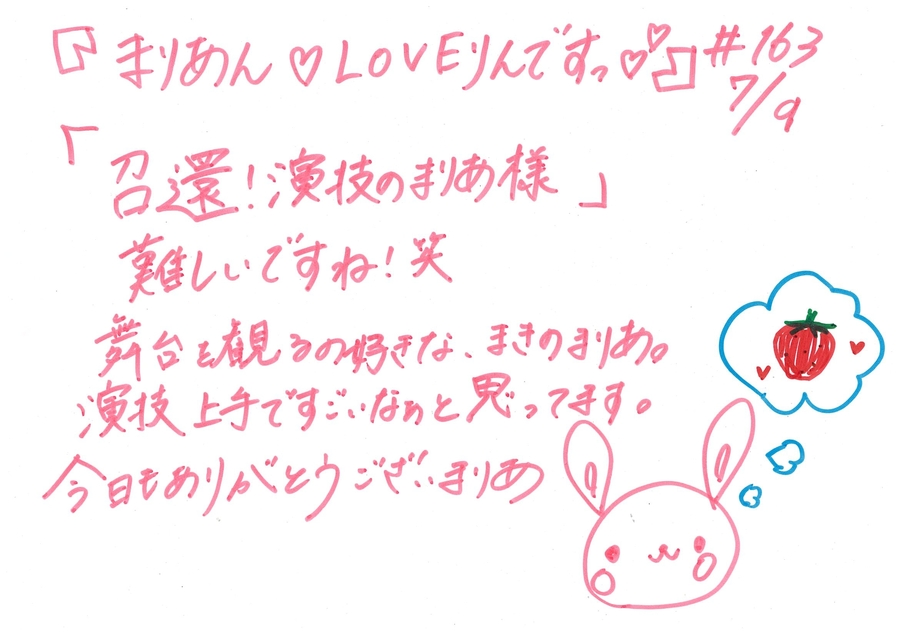 『まりあん♡LOVEりんですっ♡♡』#163
7/9
「召還！演技のまりあ様」
難しいですね！笑
舞台を観るの好きな、まきのまりあ。
演技上手ですごいなぁと思ってます。
今日もありがとうございまりあ